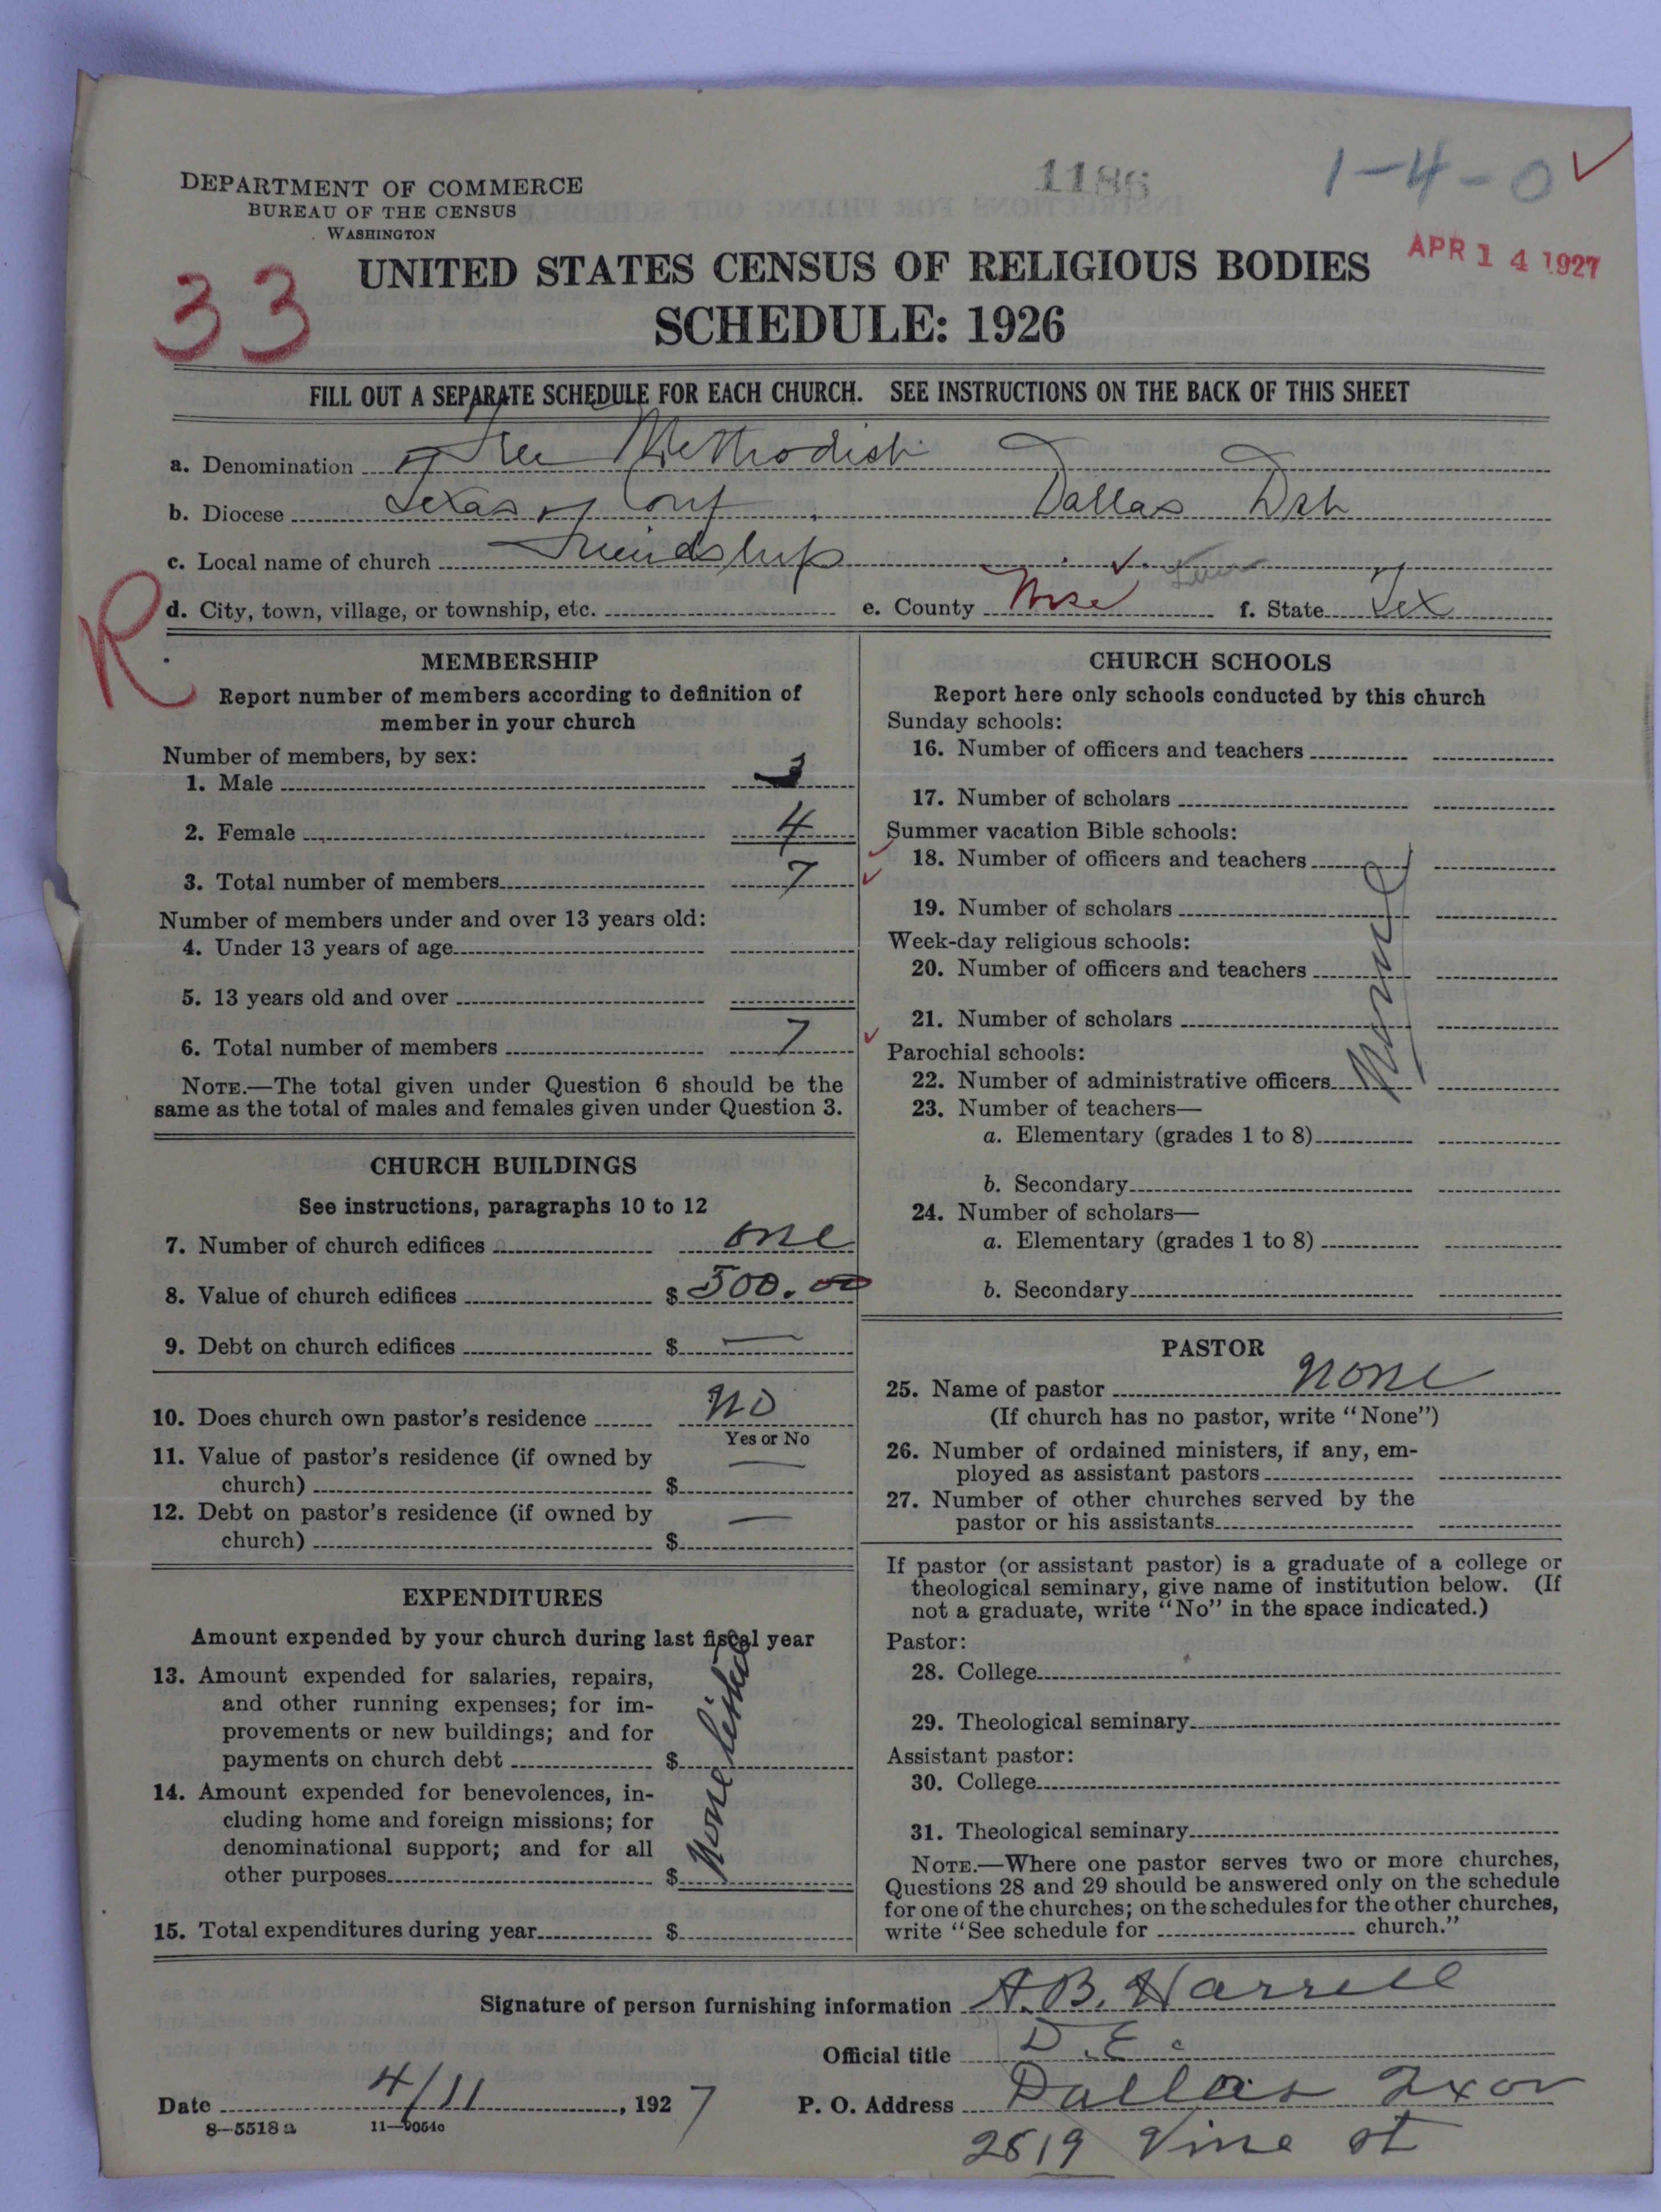 1186
1-4-0
DEPARTMENT OF COMMERCE
BUREAU OF THE CENSUS
WASHINGTON
APR 14 1927
33
UNITED STATES CENSUS OF RELIGIOUS BODIES
SCHEDULE: 1926
FILL OUT A SEPARATE SCHEDULE FOR EACH CHURCH. SEE INSTRUCTIONS ON THE BACK OF THIS SHEET
a. Denomination Free Methodist
b. Diocese Texas Conf. Dallas Dst
c. Local name of church Friendship
d. City, town, village, or township, etc. e. County Wise f. State Tex
R
MEMBERSHIP
Report number of members according to definition of
member in your church
Number of members, by sex:
1. Male 3
2. Female 4
3. Total number of members 7
Number of members under and over 13 years old:
4. Under 13 years of age
5. 13 years old and over
6. Total number of members 7
NOTE.—The total given under Question 6 should be the
same as the total of males and females given under Question 3.
CHURCH BUILDINGS
See instructions, paragraphs 10 to 12
7. Number of church edifices one
8. Value of church edifices $ 500.00
9. Debt on church edifices $ —
10. Does church own pastor's residence No
Yes or No
11. Value of pastor's residence (if owned by
church) $ —
12. Debt on pastor's residence (if owned by
church) $ —
EXPENDITURES
Amount expended by your church during last fiscal year
13. Amount expended for salaries, repairs,
and other running expenses; for im-
provements or new buildings; and for
payments on church debt $
14. Amount expended for benevolences, in-
cluding home and foreign missions; for
denominational support; and for all
other purposes $
None listed
15. Total expenditures during year $
CHURCH SCHOOLS
Report here only schools conducted by this church
Sunday schools:
16. Number of officers and teachers
17. Number of scholars
Summer vacation Bible schools:
18. Number of officers and teachers
19. Number of scholars
Week-day religious schools:
20. Number of officers and teachers
21. Number of scholars
Parochial schools:
22. Number of administrative officers
None
23. Number of teachers—
a. Elementary (grades 1 to 8)
b. Secondary
24. Number of scholars—
a. Elementary (grades 1 to 8)
b. Secondary
PASTOR
25. Name of pastor None
(If church has no pastor, write "None")
26. Number of ordained ministers, if any, em-
ployed as assistant pastors
27. Number of other churches served by the
pastor or his assistants
If pastor (or assistant pastor) is a graduate of a college or
theological seminary, give name of institution below. (If
not a graduate, write "No" in the space indicated.)
Pastor:
28. College
29. Theological seminary
Assistant pastor:
30. College
31. Theological seminary
NOTE.—Where one pastor serves two or more churches,
Questions 28 and 29 should be answered only on the schedule
for one of the churches; on the schedules for the other churches,
write "See schedule for church."
Signature of person furnishing information A. B. Harrell
Official title D. E.
Date 4/11, 1927 P. O. Address Dallas
8-5518 a 11-9054c
2519 Vine st